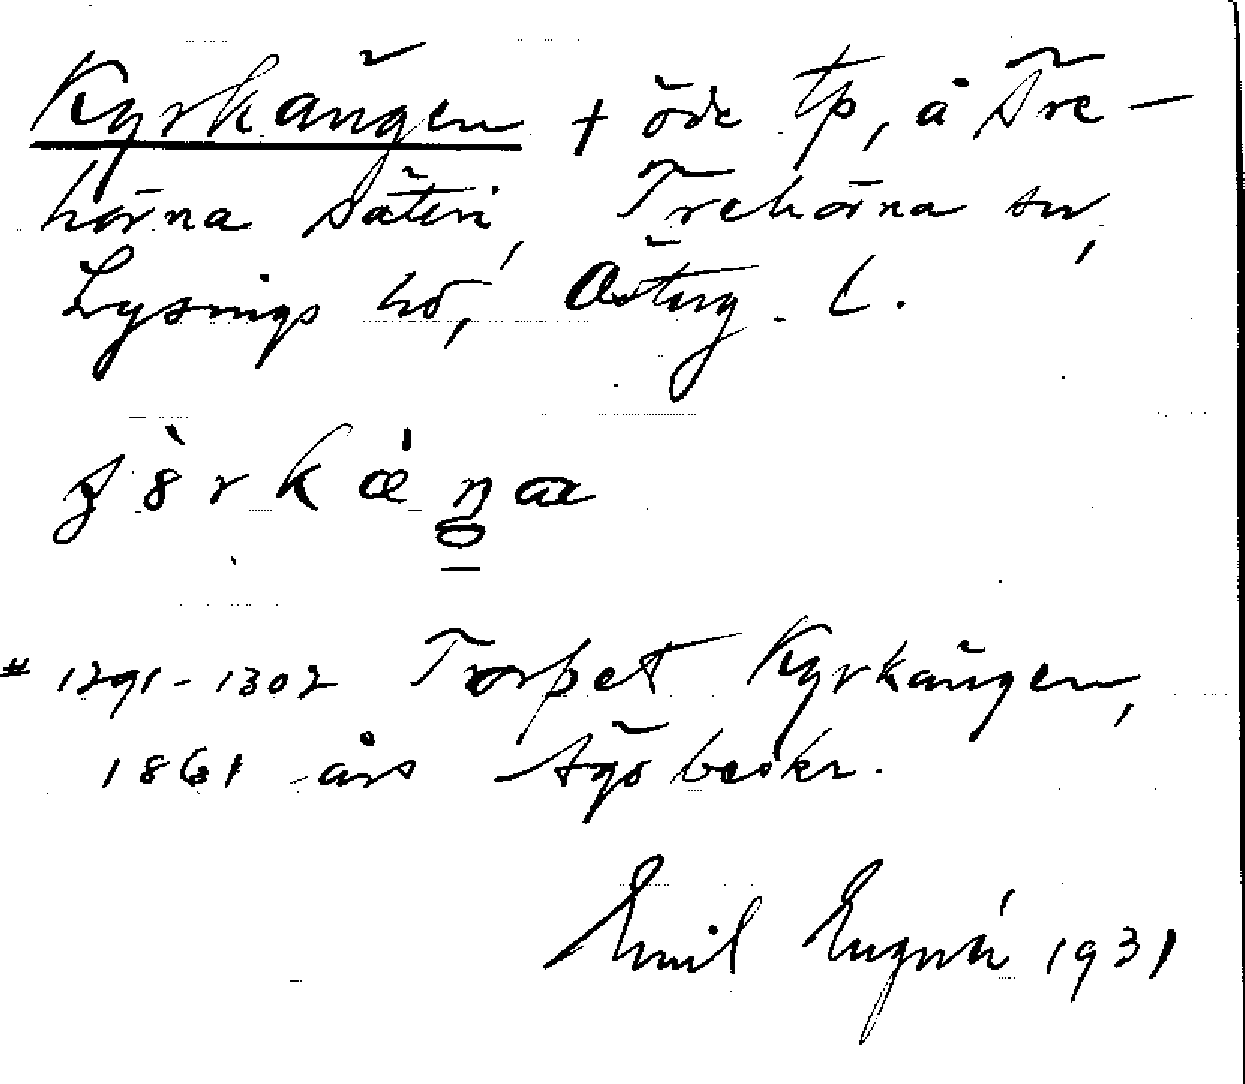 Kyrkängen + öde tp, å Tre-
hörna säteri, Trehörna sn,
Lysings hd, Österg. l.
# 1291-1302 Torpet Kyrkängen,
1861 års ägobeskr.
Emil 1931